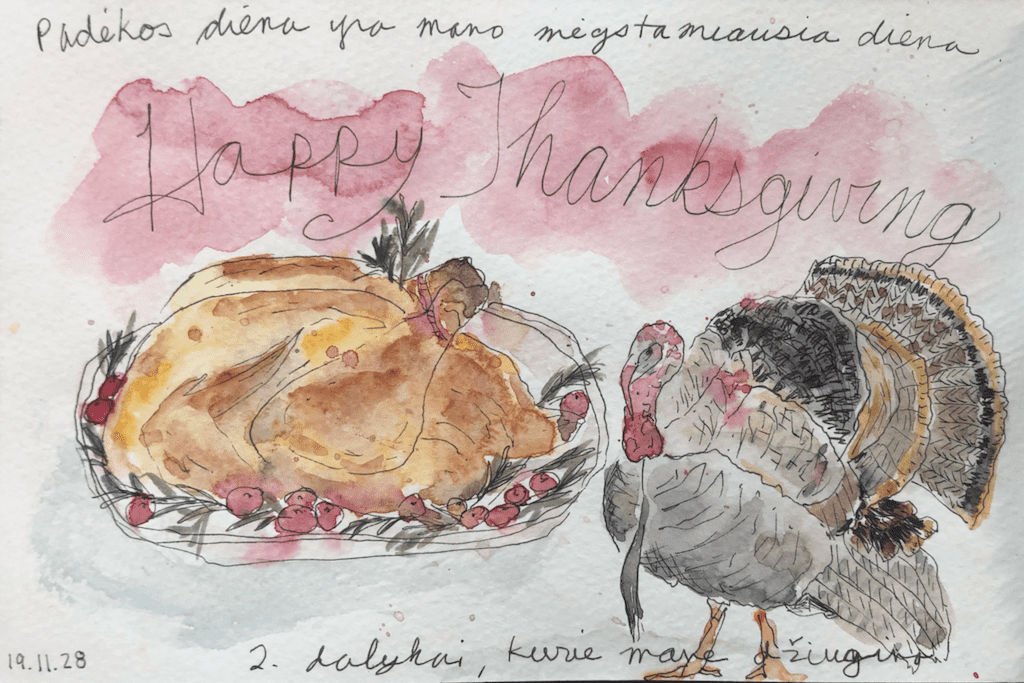 Padėkos diena yra mano mėgstamiausia diena
Happy Thanksgiving
19.11.28
2. dalykai, kurie mane džiugina